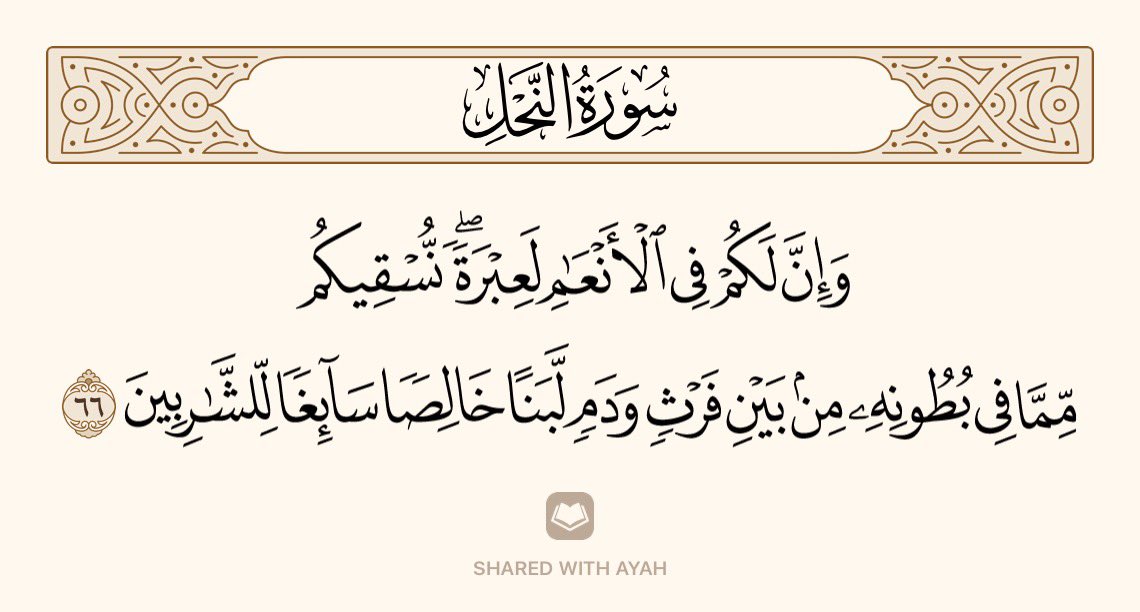 سُورَةُ النَّحْلِ
وَإِنَّ لَكُمْ فِى ٱلْأَنْعَٰمِ لَعِبْرَةً ۖ نُّسْقِيكُم
مِّمَّا فِى بُطُونِهِۦ مِنۢ بَيْنِ فَرْثٍ وَدَمٍ لَّبَنًا خَالِصًا سَآئِغًا لِّلشَّٰرِبِينَ ٦٦
SHARED WITH AYAH